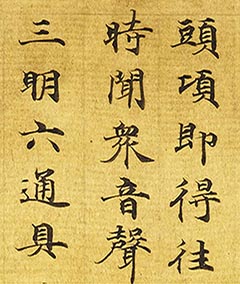 頭項即得往
時聞衆音聲
三明六通具